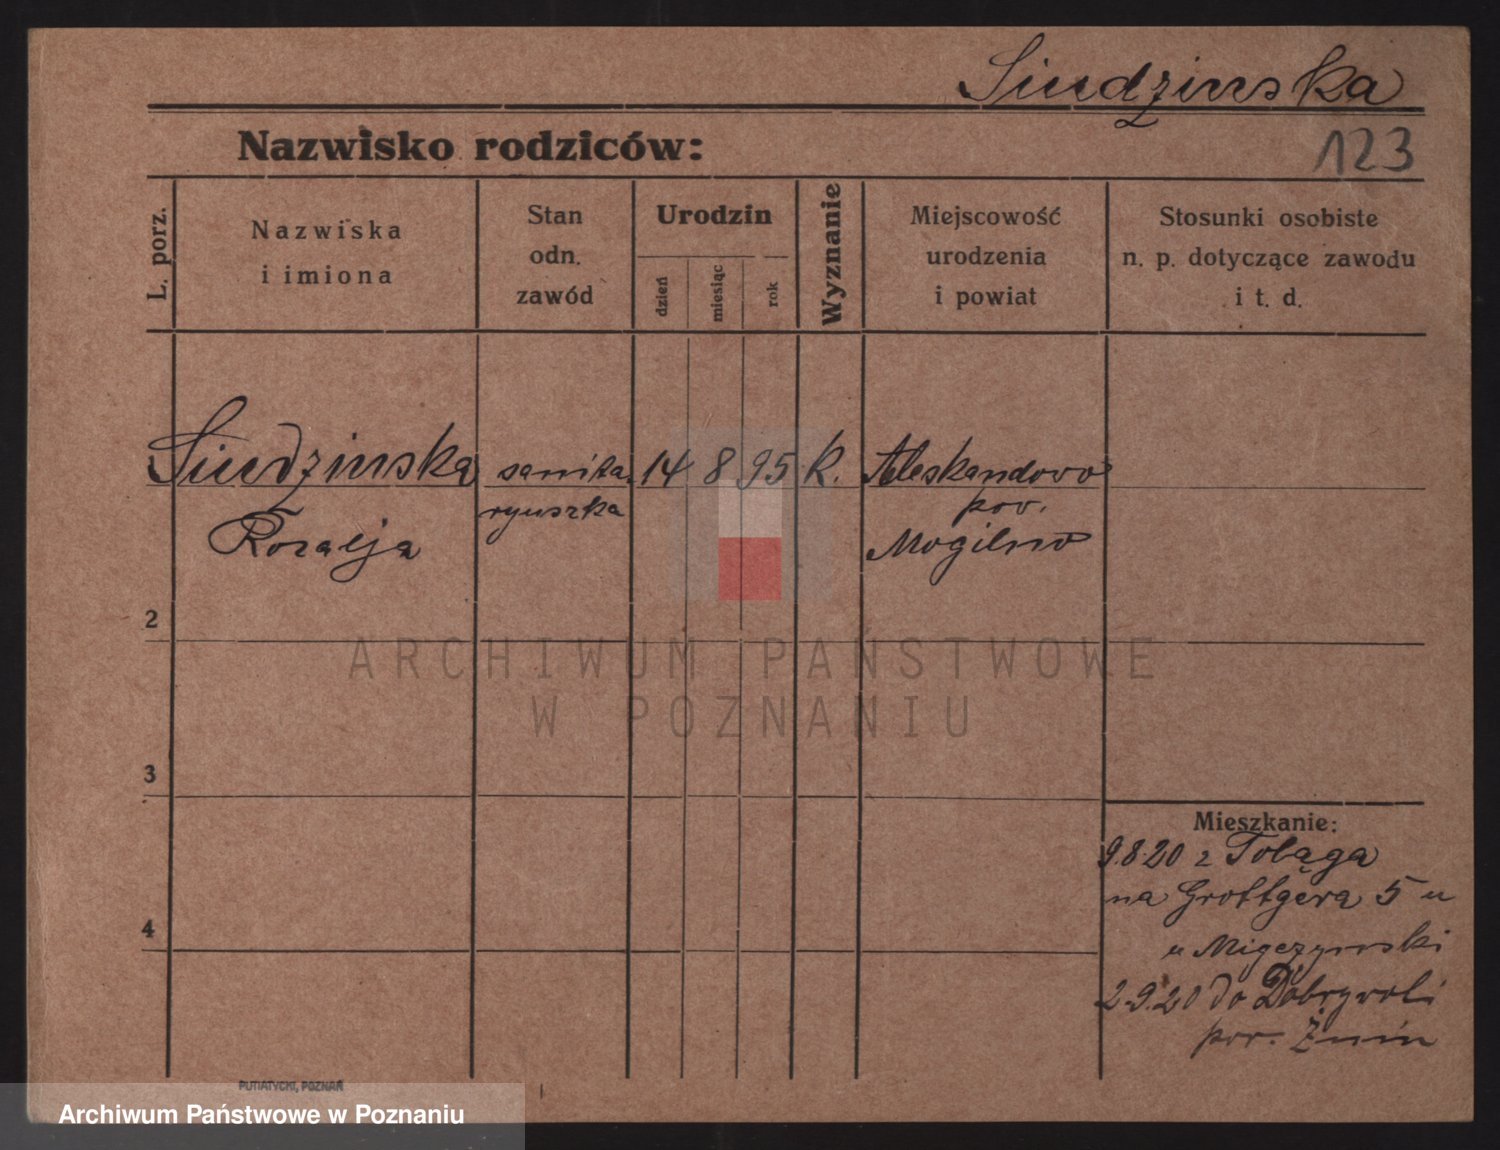 Siudzinska
Nazwisko rodziców:
123
L. porz.
Nazwiska
i imiona
Stan
odn.
zawód
Urodzin
dzień
miesiąc
rok
Wyznanie
Miejscowość
urodzenia
i powiat
Stosunki osobiste
n. p. dotyczące zawodu
i t. d.
Siudzinska
Rozalja
sanita
ryuszka
14 8 95 k.
Aleskandowo
pow.
Mogilno
2
3
4
ARCHIWUM PAŃSTWOWE
W POZNANIU
Mieszkanie:
9.8.20 z
na Grottgera 5
u
2.9.20 do Dobrywoli
pow. Żnin
PUTIATYCKI, POZNAŃ
Archiwum Państwowe w Poznaniu